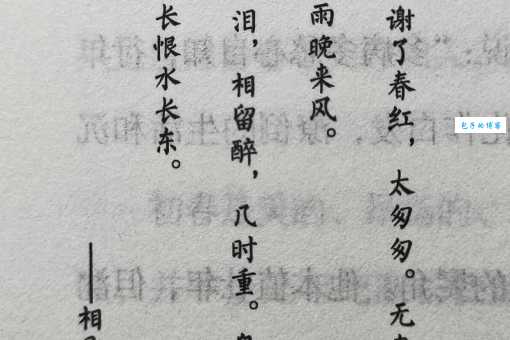 谢了春红，太匆匆。无
雨晚来风。
泪，相留醉，几时重。
长恨水长东。
——相
包子的博客